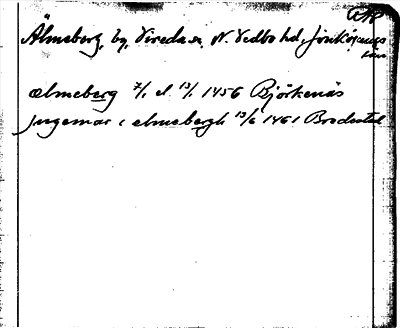 Älmeberg, by, Vireda sn, N. Vedbo hd, Jönköpings
län
ælmeberg 7/1 el 13/1 1456 Björkenäs
Jngemar i elmebergh 13/6 1461 Brodestal